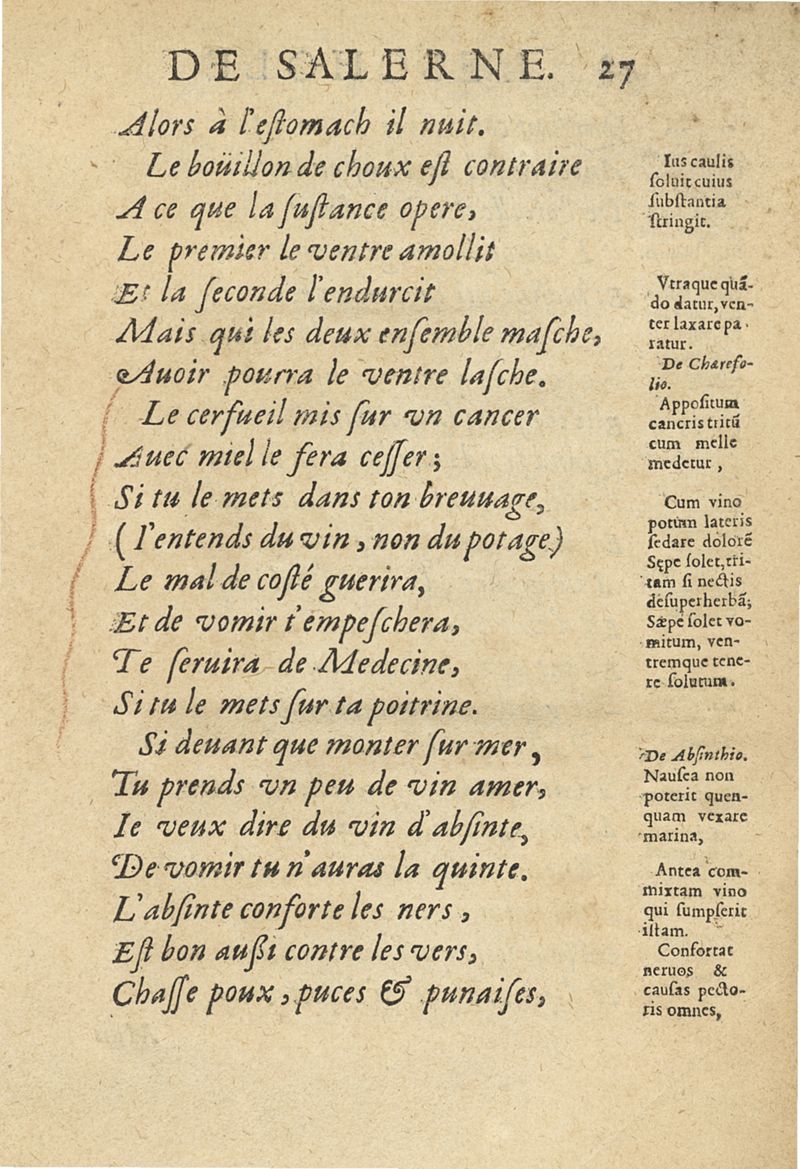 DE SALERNE. 27
Alors à l'eſtomach il nuit.
Le boüillon de choux eſt contraire
A ce que la ſuſtance opere,
Le premier le ventre amollit
Et la ſeconde l'endurcit
Mais qui les deux enſemble maſche,
Auoir pourra le ventre laſche.
Le cerfueil mis ſur vn cancer
Auec miel le fera ceſſer;
Si tu le mets dans ton breuuage,
(I'entends du vin, non du potage)
Le mal de coſté guerira,
Et de vomir t'empeſchera,
Te ſeruira de Medecine,
Si tu le mets ſur ta poitrine.
Si deuant que monter ſur mer,
Tu prends vn peu de vin amer,
Ie veux dire du vin d'abſinte,
De vomir tu n'auras la quinte.
L'abſinte conforte les ners,
Eſt bon auſſi contre les vers,
Chaſſe poux, puces & punaiſes,
Ius caulis
ſoluit cuius
ſubſtantia
ſtringit.
Vtraque quã-
do datur, ven-
ter laxare pa-
ratur.
De Charefo-
lio.
Appoſitum
cancris tritũ
cum melle
medetur,
Cum vino
potum lateris
ſedare dolorẽ
Sępe ſolet, tri-
tam ſi nectis
deſuper herbã;
Sæpe ſolet vo-
mitum, ven-
tremque tene-
re ſolutum.
De Abſinthio.
Nauſea non
poterit quen-
quam vexare
marina,
Antea com-
mixtam vino
qui ſumpſerit
illam.
Confortat
neruos &
cauſas pecto-
ris omnes,